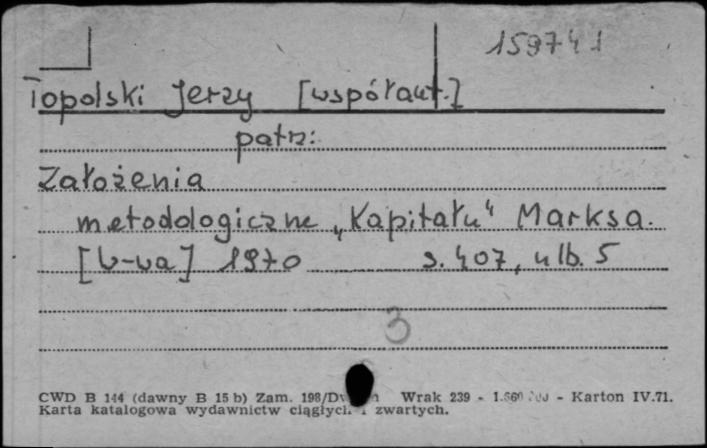 159741
Topolski Jerzy [współaut.]
patrz:
Założenia
metodologiczne „Kapitału" Marksa.
[W-wa] 1970 s. 407, nlb. 5
3
CWD B 144 (dawny B 15 b) Zam. 198/ Wrak 239 - - Karton IV.71.
Karta katalogowa wydawnictw ciągłych i zwartych.